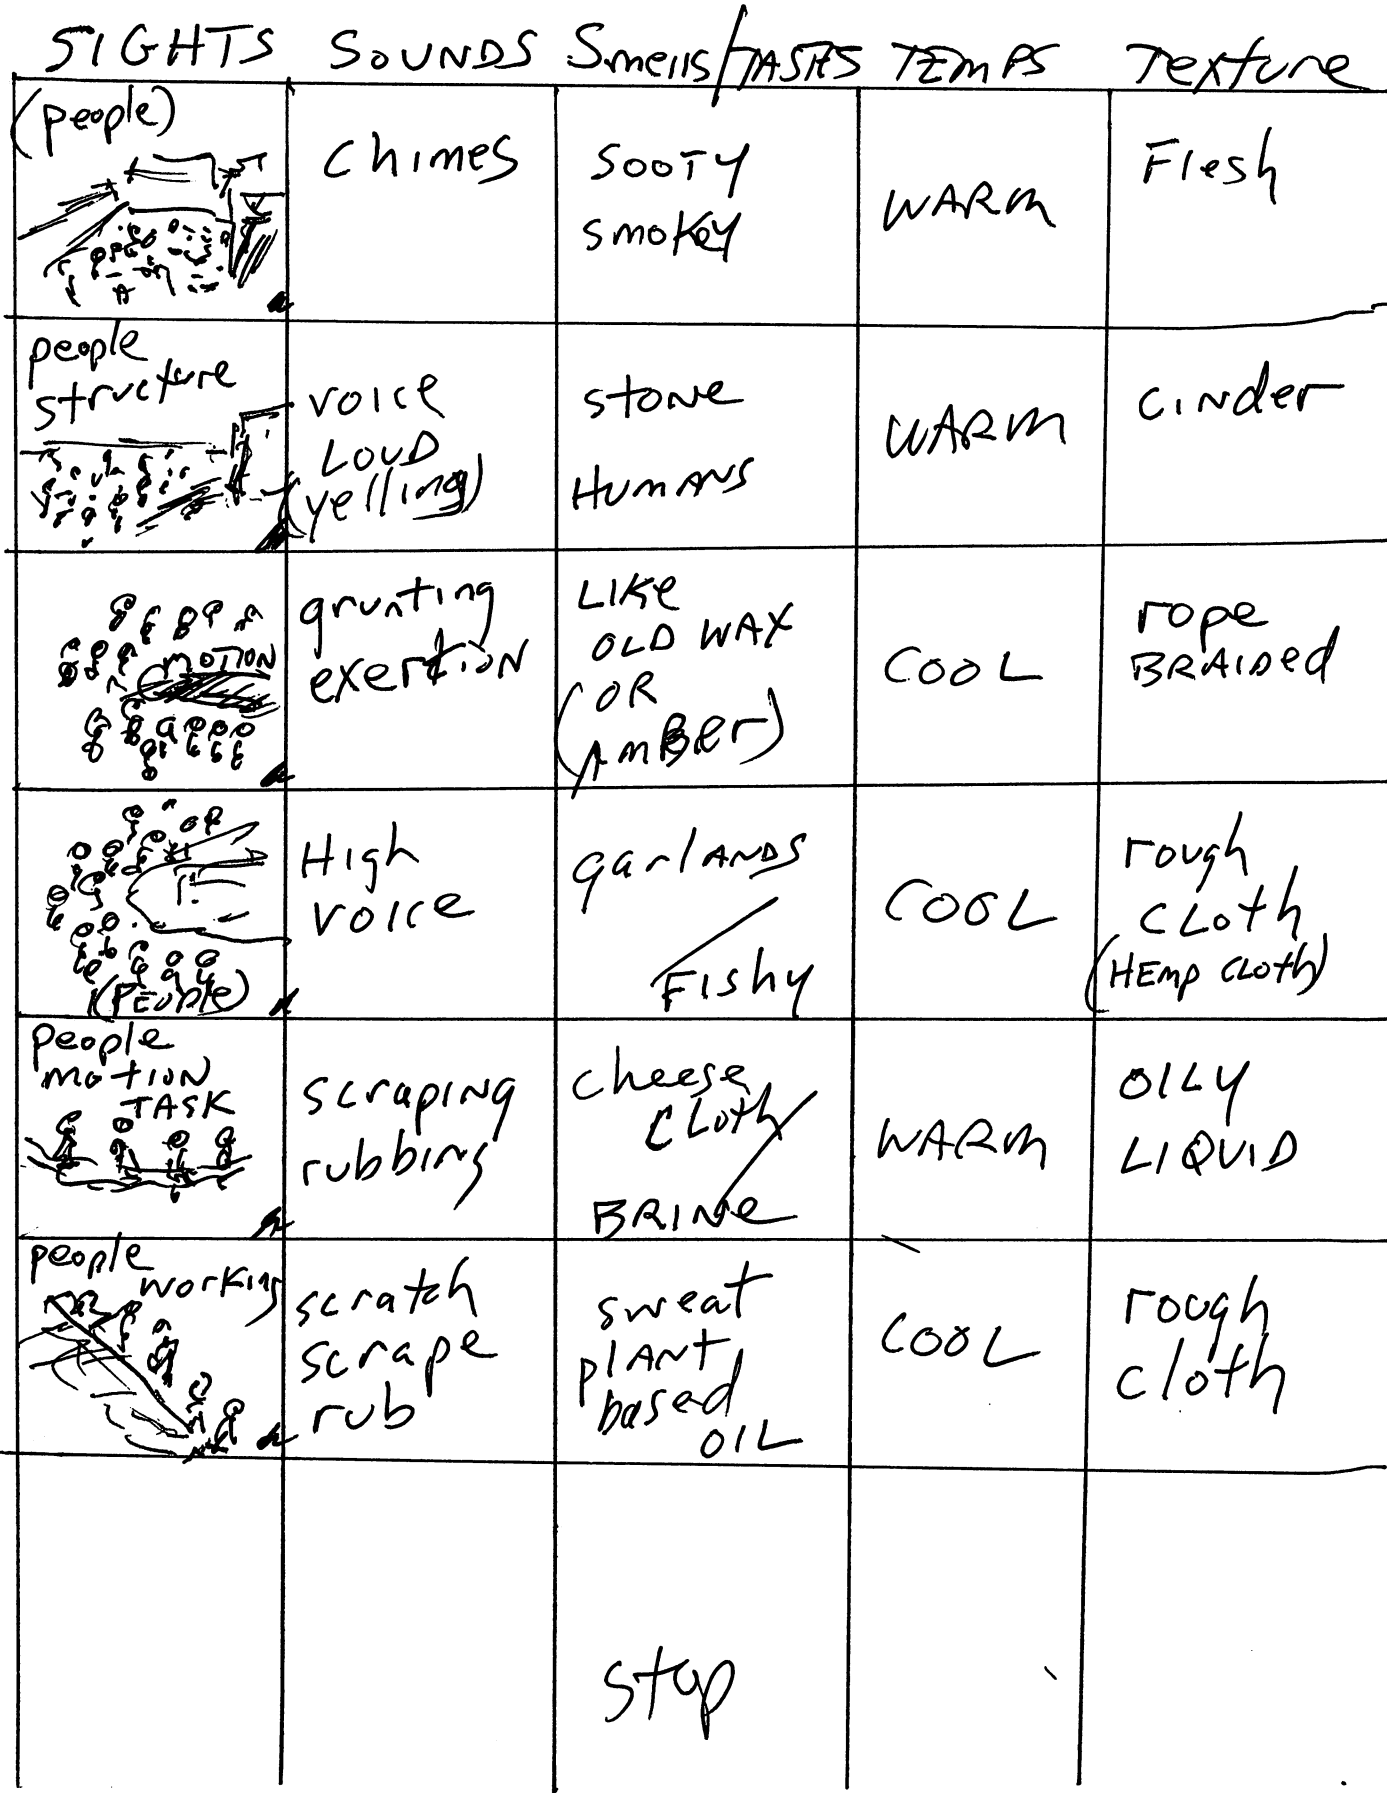 SIGHTS SOUNDS Smells/TASTES TEMPS Texture
(people)
chimes
SOOTY
smokey
WARM
Flesh
people
structure
voice
LOUD
(yelling)
stone
HUMANS
WARM
cinder
MOTION
grunting
exertion
LIKE
OLD WAX
(OR
AMBER)
COOL
rope
BRAIDED
(PEOPLE)
High
voice
garlANDS
/
FISHY
COOL
rough
cloth
(HEMP CLOTH)
people
MOTION
TASK
scraping
rubbing
cheese
cloth /
BRINE
WARM
OILY
LIQUID
people
working
scratch
scrape
rub
sweat
PLANT
based
OIL
COOL
rough
cloth
stop